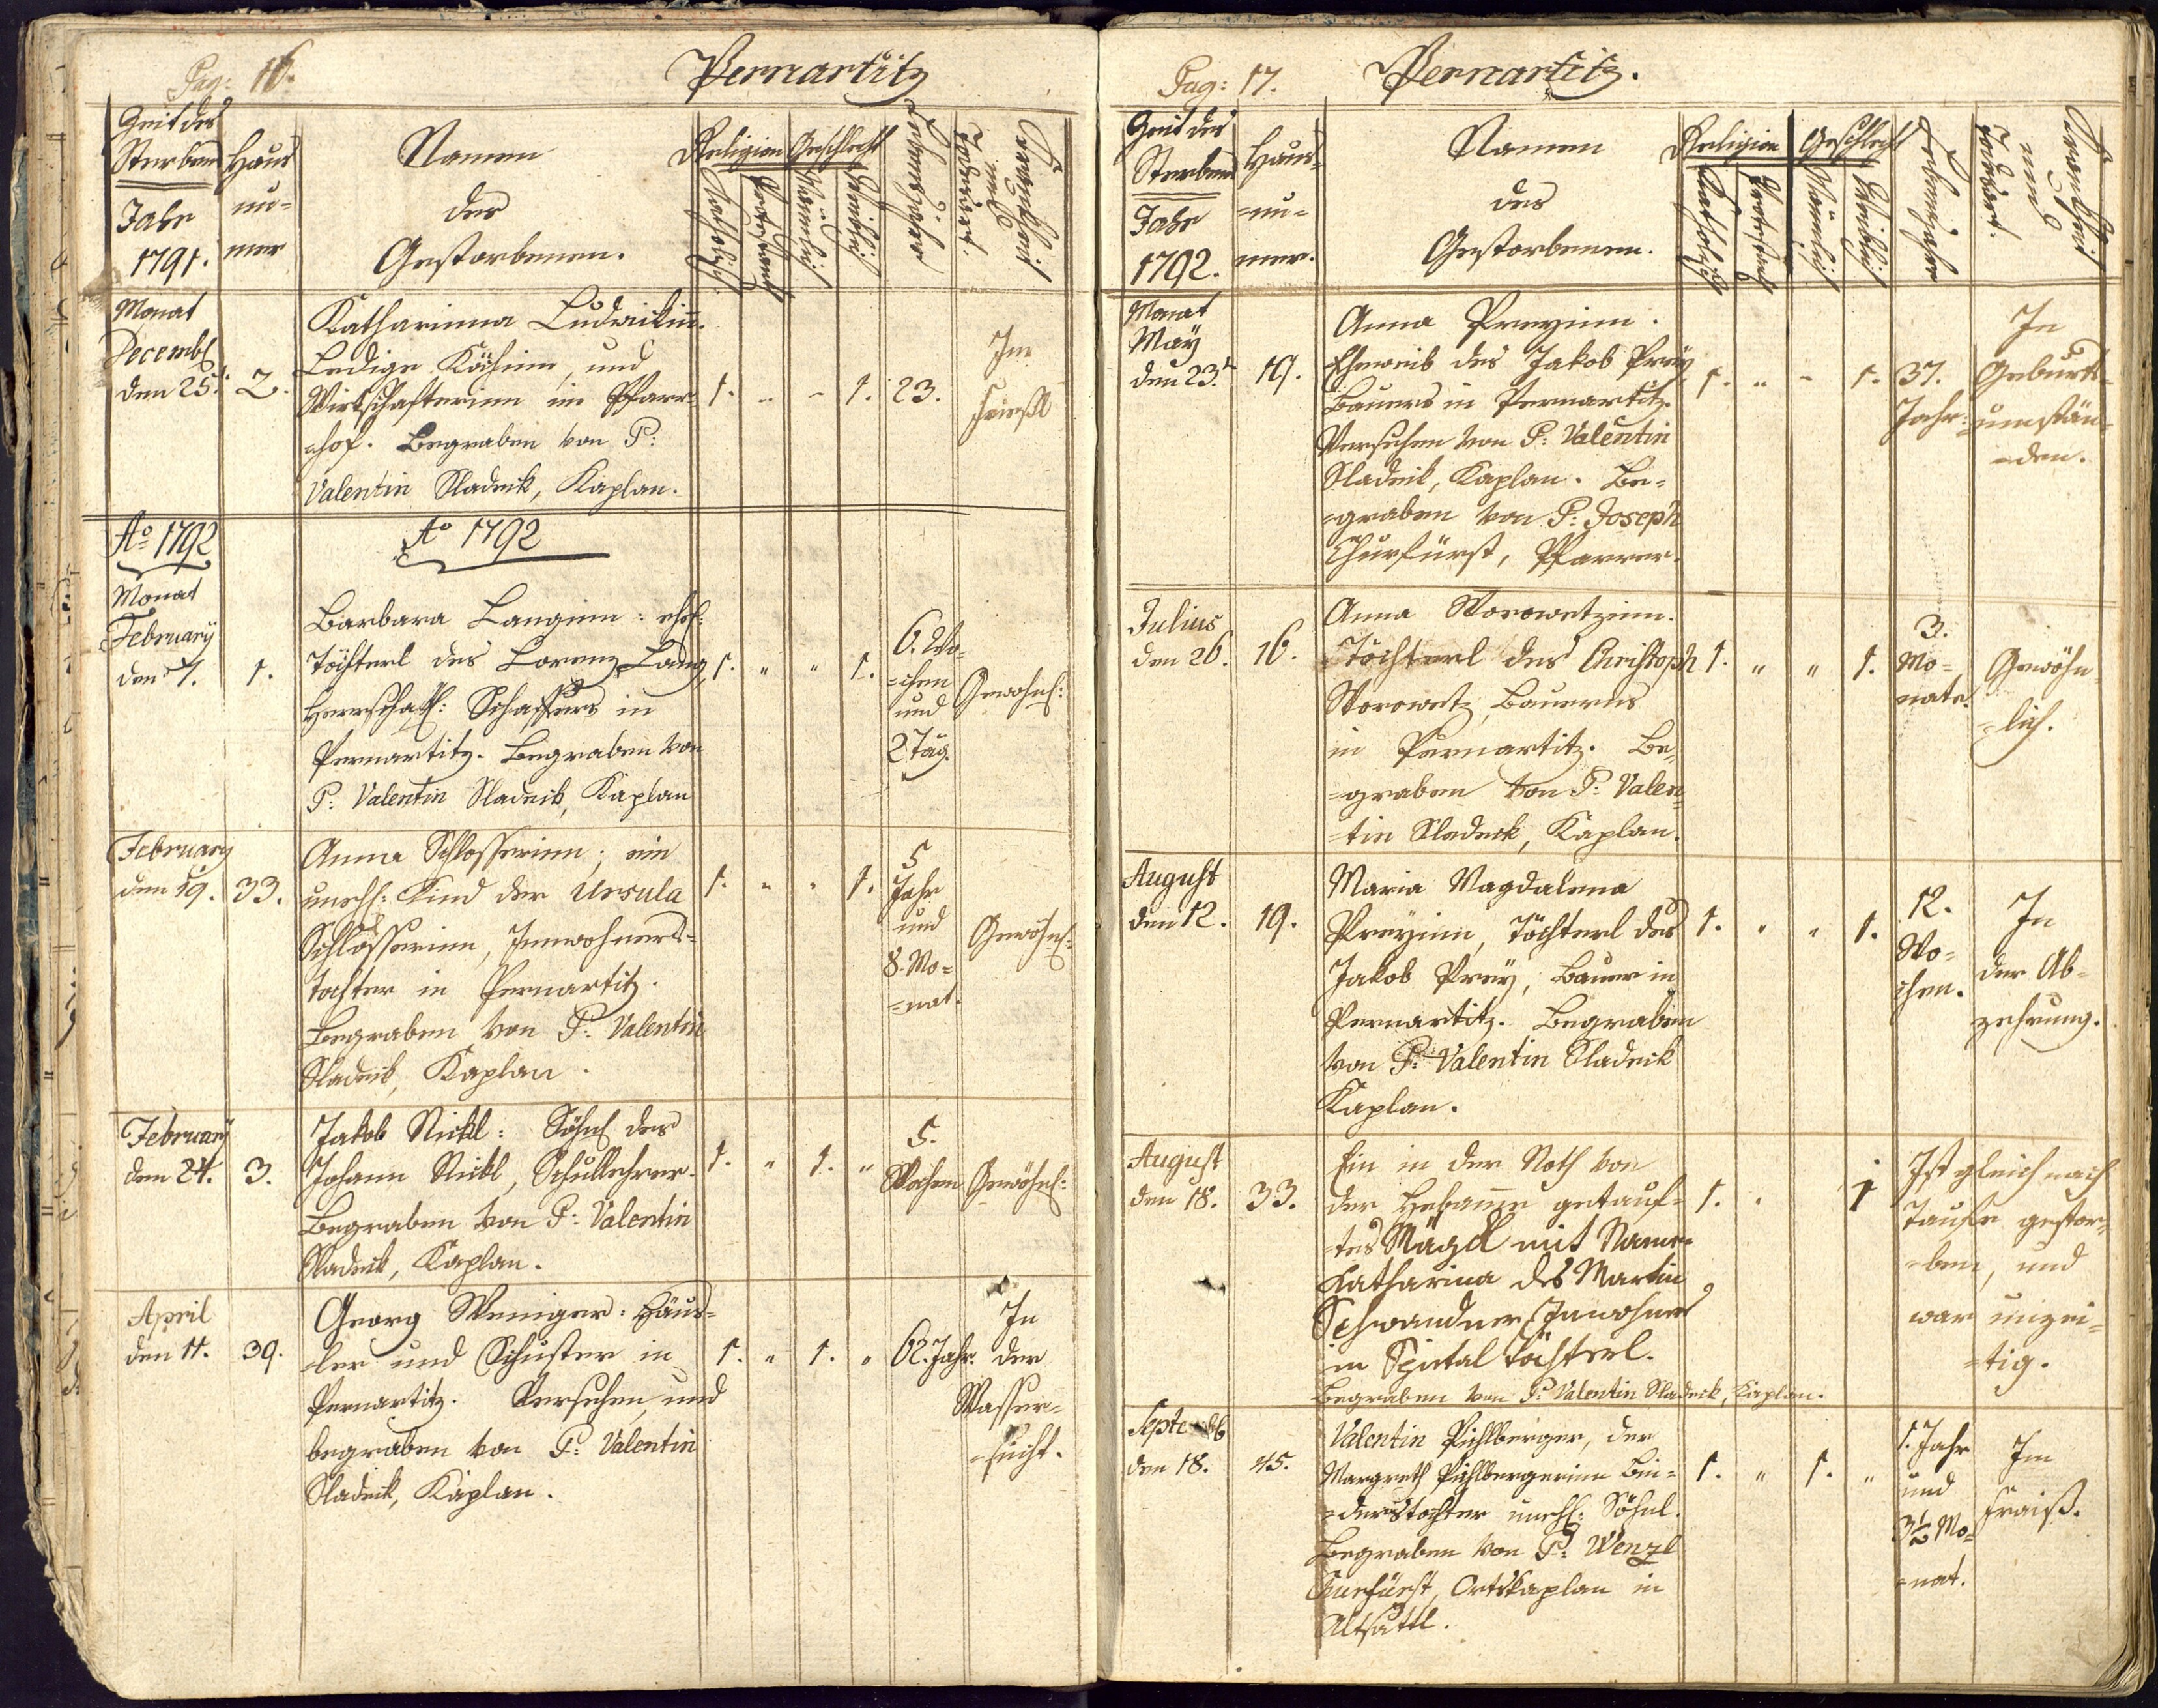 Pag: 16.
Pernartitz
Zeit des Sterbens
Jahr 1791.
Haus
nu=
mer
Namen
der
Gestorbenen.
Religion
Katholisch
Protestant
Geschlecht
Männlich
Weiblich
Lebensjahre
Krankheit
und
Todesart.
Monat
Decemb
den 25t
2.
Katharinna Ludwickin.
Ledige Köchinn, und
Wirthschafterinn im Pfarr=
=hof. Begraben von P:
Valentin Sladeik, Kaplan.
1. „ - 1. 23.
Im
Ao 1792
Ao 1792
Monat
February
den 7.
1.
Barbara Langinn: ehel:
Töchterl des Lorenz Lang,
Herrschaftl: Schaffers in
Pernartitz. Begraben von
P: Valentin Sladeik, Kaplan
1. „ „ 1.
6. Wo=
=chen
und
2 Täg.
Gewöhnl:
February
den 19.
33.
Anna Schlosserinn; ein
unehl: Kind der Ursula
Schlosserinn, Innwohners=
tochter in Pernartitz.
Begraben von P: Valentin
Sladeik, Kaplan.
1. „ „ 1.
5
Jahr
und
8. Mo=
=nat.
Gewöhnl:
February
den 24.
3.
Jakob Nickl: Söhnl des
Johann Nickl, Schullehrer.
Begraben von P: Valentin
Sladeik, Kaplan.
1. „ 1. „
5.
Wochen
Gewöhnl:
April
den 11.
39.
Georg Weniger: Häus=
=ler und Schuster in
Pernartitz. Versehen, und
begraben von P: Valentin
Sladeik, Kaplan.
1. „ 1. „
62. Jahr.
In
der
Wasser=
=sucht.
Pag: 17.
Pernartitz.
Zeit des
Sterbens
Jahr
1792.
Haus=
=nu=
mer.
Namen
der
Gestorbenen.
Religion
Katholisch
Protestant
Geschlecht
Männlich
Weiblich
Lebensjahre
Krankheit
und
Todesart.
Monat
May
den 23t
19.
Anna Preyinn.
Eheweib des Jakob Prey
Bauers in Pernartitz.
Versehen von P: Valentin
Sladeik, Kaplan. Be=
=graben von P: Joseph
Churfürst, Pfarrer.
1. „ - 1.
37.
Jahr:
In
Geburts=
=umstän=
=den.
Julius
den 26.
16.
Anna Worowetzinn.
Töchterl des Christoph
Worowetz, Bauerns
in Pernartitz. Be=
=graben von P: Valen=
=tin Sladeik, Kaplan.
1. „ „ 1.
3.
Mo=
nate.
Gewöhn
=lich.
August
den 12.
19.
Maria Magdalena
Preyinn, Töchterl des
Jakob Prey, Bauer in
Pernartitz. Begraben
von P: Valentin Sladeik
Kaplan.
1. „ „ 1.
12.
Wo=
chen.
In
der Ab=
zehrung.
August
den 18.
33.
Ein in der Noth von
der Hebamme getauf=
=tes Mägdl mit Namen
Katharina des Martin
Schwandner Innwohner
im Spital töchterl.
Begraben von P: Valentin Sladeik, Kaplan.
1. „ 1
Ist gleich nach
Taufe gestor=
=ben, und
war unzei=
=tig.
Septemb
den 18.
45.
Valentin Pichlberger, der
Margreth Pichlbergerinn Bin=
=derstochter unehl: Söhnl.
Begraben von P: Wenzl
Churfürst, Ortskaplan in
Altsattl.
1. „ 1. „
1. Jahr
und
3½ Mo=
=nat.
Im
Fraiß.